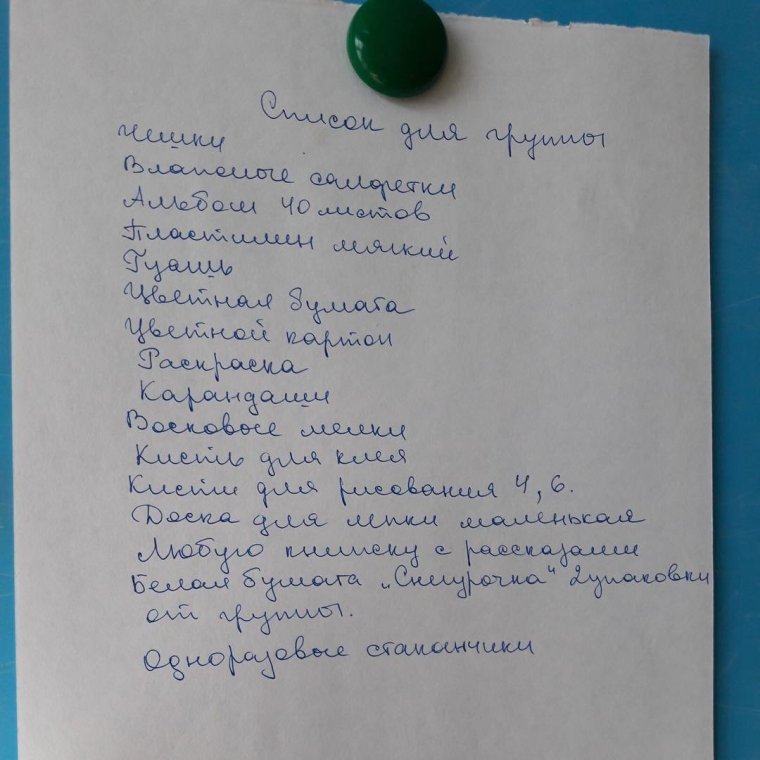 Список для группы
Чешки
Влапсные салфетки
Альбом 40 листов
Пластилин мягкий
Гуашь
Цветная бумага
Цветной картон
Раскраска
Карандаши
Восковые мелки
Кисть для клея
Кисти для рисования 4, 6.
Доска для лепки маленькая
Любую книжку с рассказами
Белая бумага „Снегурочка" 2 упаковки
от группы.
Одноразовые стаканчики